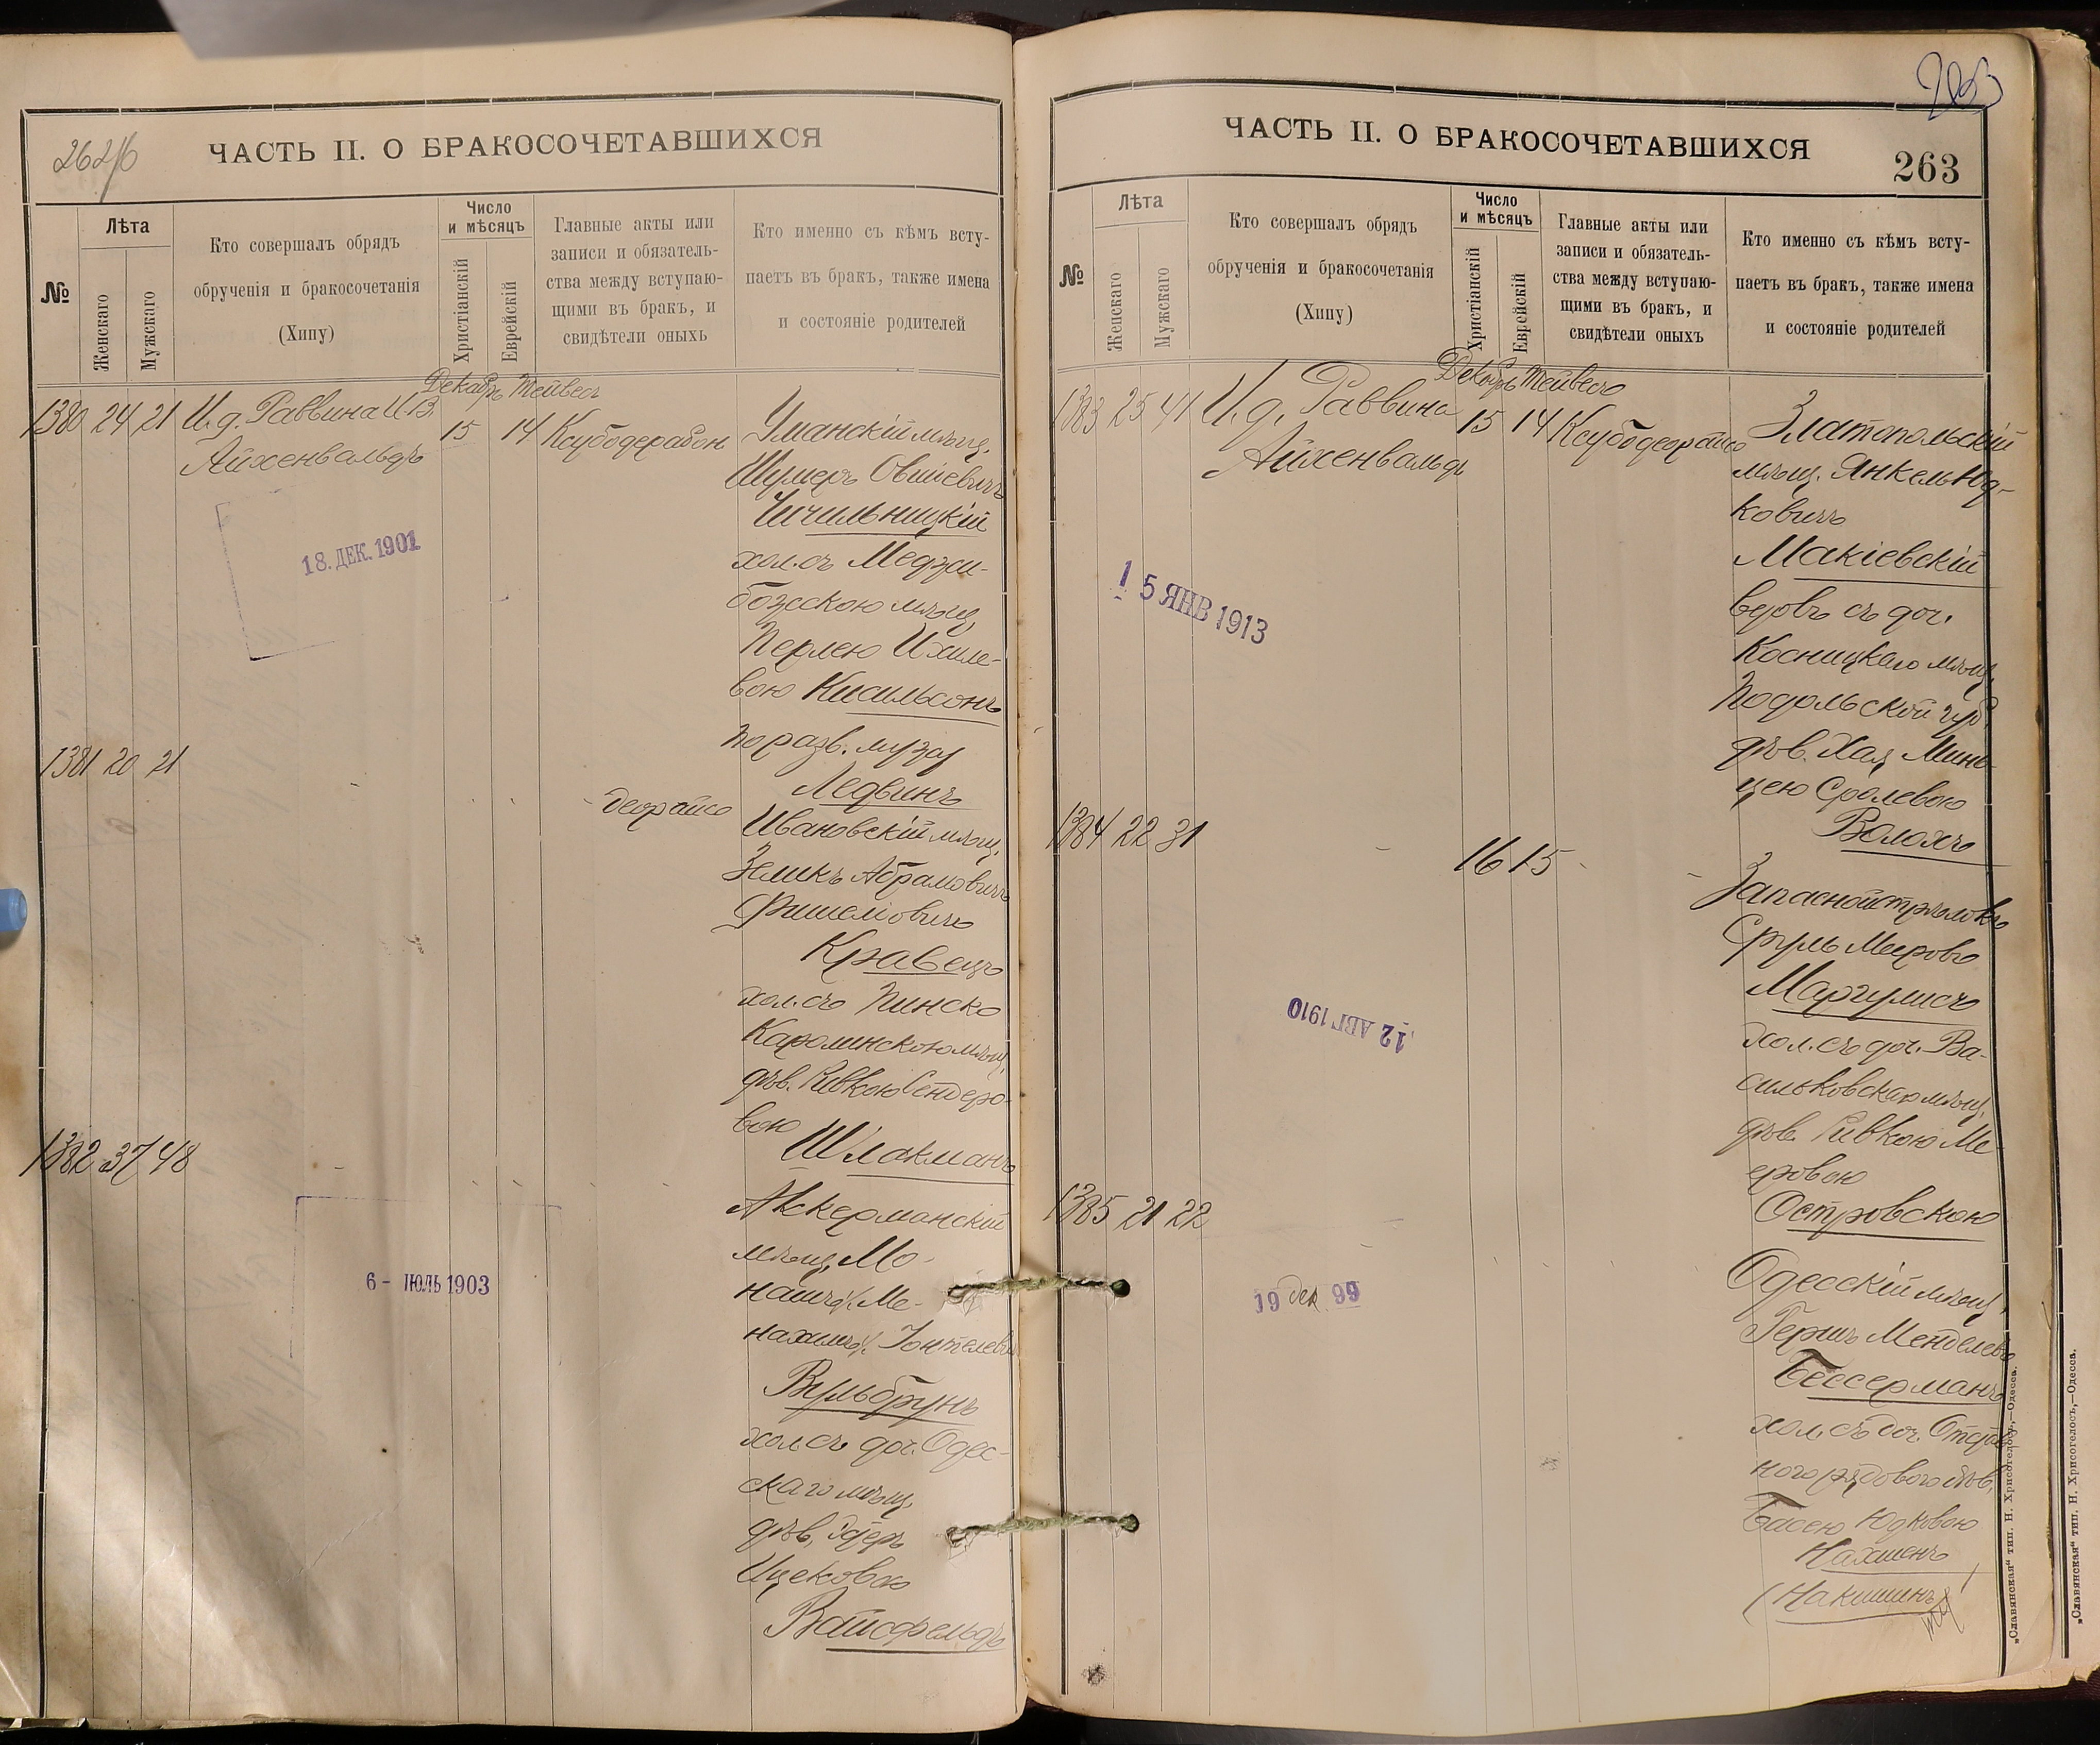 262/б
ЧАСТЬ II. О БРАКОСОЧЕТАВШИХСЯ
№
Лѣта
Женскаго
Мужскаго
Кто совершалъ обрядъ
обрученія и бракосочетанія
(Хипу)
Число
и мѣсяцъ
Христіанскій
Еврейскій
Главные акты или
записи и обязатель-
ства между вступаю-
щими въ бракъ, и
свидѣтели оныхъ
Кто именно съ кѣмъ всту-
паетъ въ бракъ, также имена
и состояніе родителей
Декабрь Тейвесъ
1380 24 21 И.д. Раввина И.В.
Айхенвальдъ
15 14
Уманскій мѣщ.
Шулеръ Овшіевичъ
Чичильницкій
хол. съ Меджи-
божскою мѣщ.
Перлею Ихиле-
вою Кисильсонъ
по разв. мужу
Ледвинъ
18. ДЕК. 1901
1381 20 21
деорайсо
Ивановскій мѣщ.
Зеликъ Абрамовичъ
Фишелювичъ
Кравецъ
хол. съ Пинско
Каролинскою мѣщ.
дѣв. Ривкою Сендеро-
вою
Шлакманъ
1382 37 48
Аккерманскій
мѣщ. Мо-
нашъ/ Ме-
нахимъ/
Вульбрунъ
хол. съ доч. Одес-
скаго мѣщ.
дѣв.
Ицековою
Вайсфельдъ
6 - ИЮЛЬ 1903
263
ЧАСТЬ II. О БРАКОСОЧЕТАВШИХСЯ
263
№
Лѣта
Женскаго
Мужскаго
Кто совершалъ обрядъ
обрученія и бракосочетанія
(Хипу)
Число
и мѣсяцъ
Христіанскій
Еврейскій
Главные акты или
записи и обязатель-
ства между вступаю-
щими въ бракъ, и
свидѣтели оныхъ
Кто именно съ кѣмъ всту-
паетъ въ бракъ, также имена
и состояніе родителей
Декабрь Тейвесъ
1383 25 41 И.д. Раввина
Айхенвальдъ
15 14 Ксубодеорайсо
Златопольскій
мѣщ. Янкель Юд-
ковичъ
Макіевскій
вдовъ съ доч.
Косницкаго мѣщ.
Подольской губ.
дѣв. Хая Мине-
цею Сролевою
Волохъ
15 ЯНВ 1913
1384 22 31
16 15
Запасной стрѣлокъ
Сруль Меировъ
Маргулисъ
хол. съ доч. Ва-
сильковскаго мѣщ.
дѣв. Ривкою Ме-
еровою
Островскою
12 АВГ 1910
1385 21 22
Одесскій мѣщ.
Гершъ Менделевъ
Бессерманъ
хол. съ доч. Отстав-
ного рядового дѣв.
Басею Юдковою
Нахшенъ
(Накшинъ)
19 дек 99
„Славянская“ тип. Н. Хрисогелосъ,—Одесса.
„Славянская“ тип. Н. Хрисогелосъ,—Одесса.